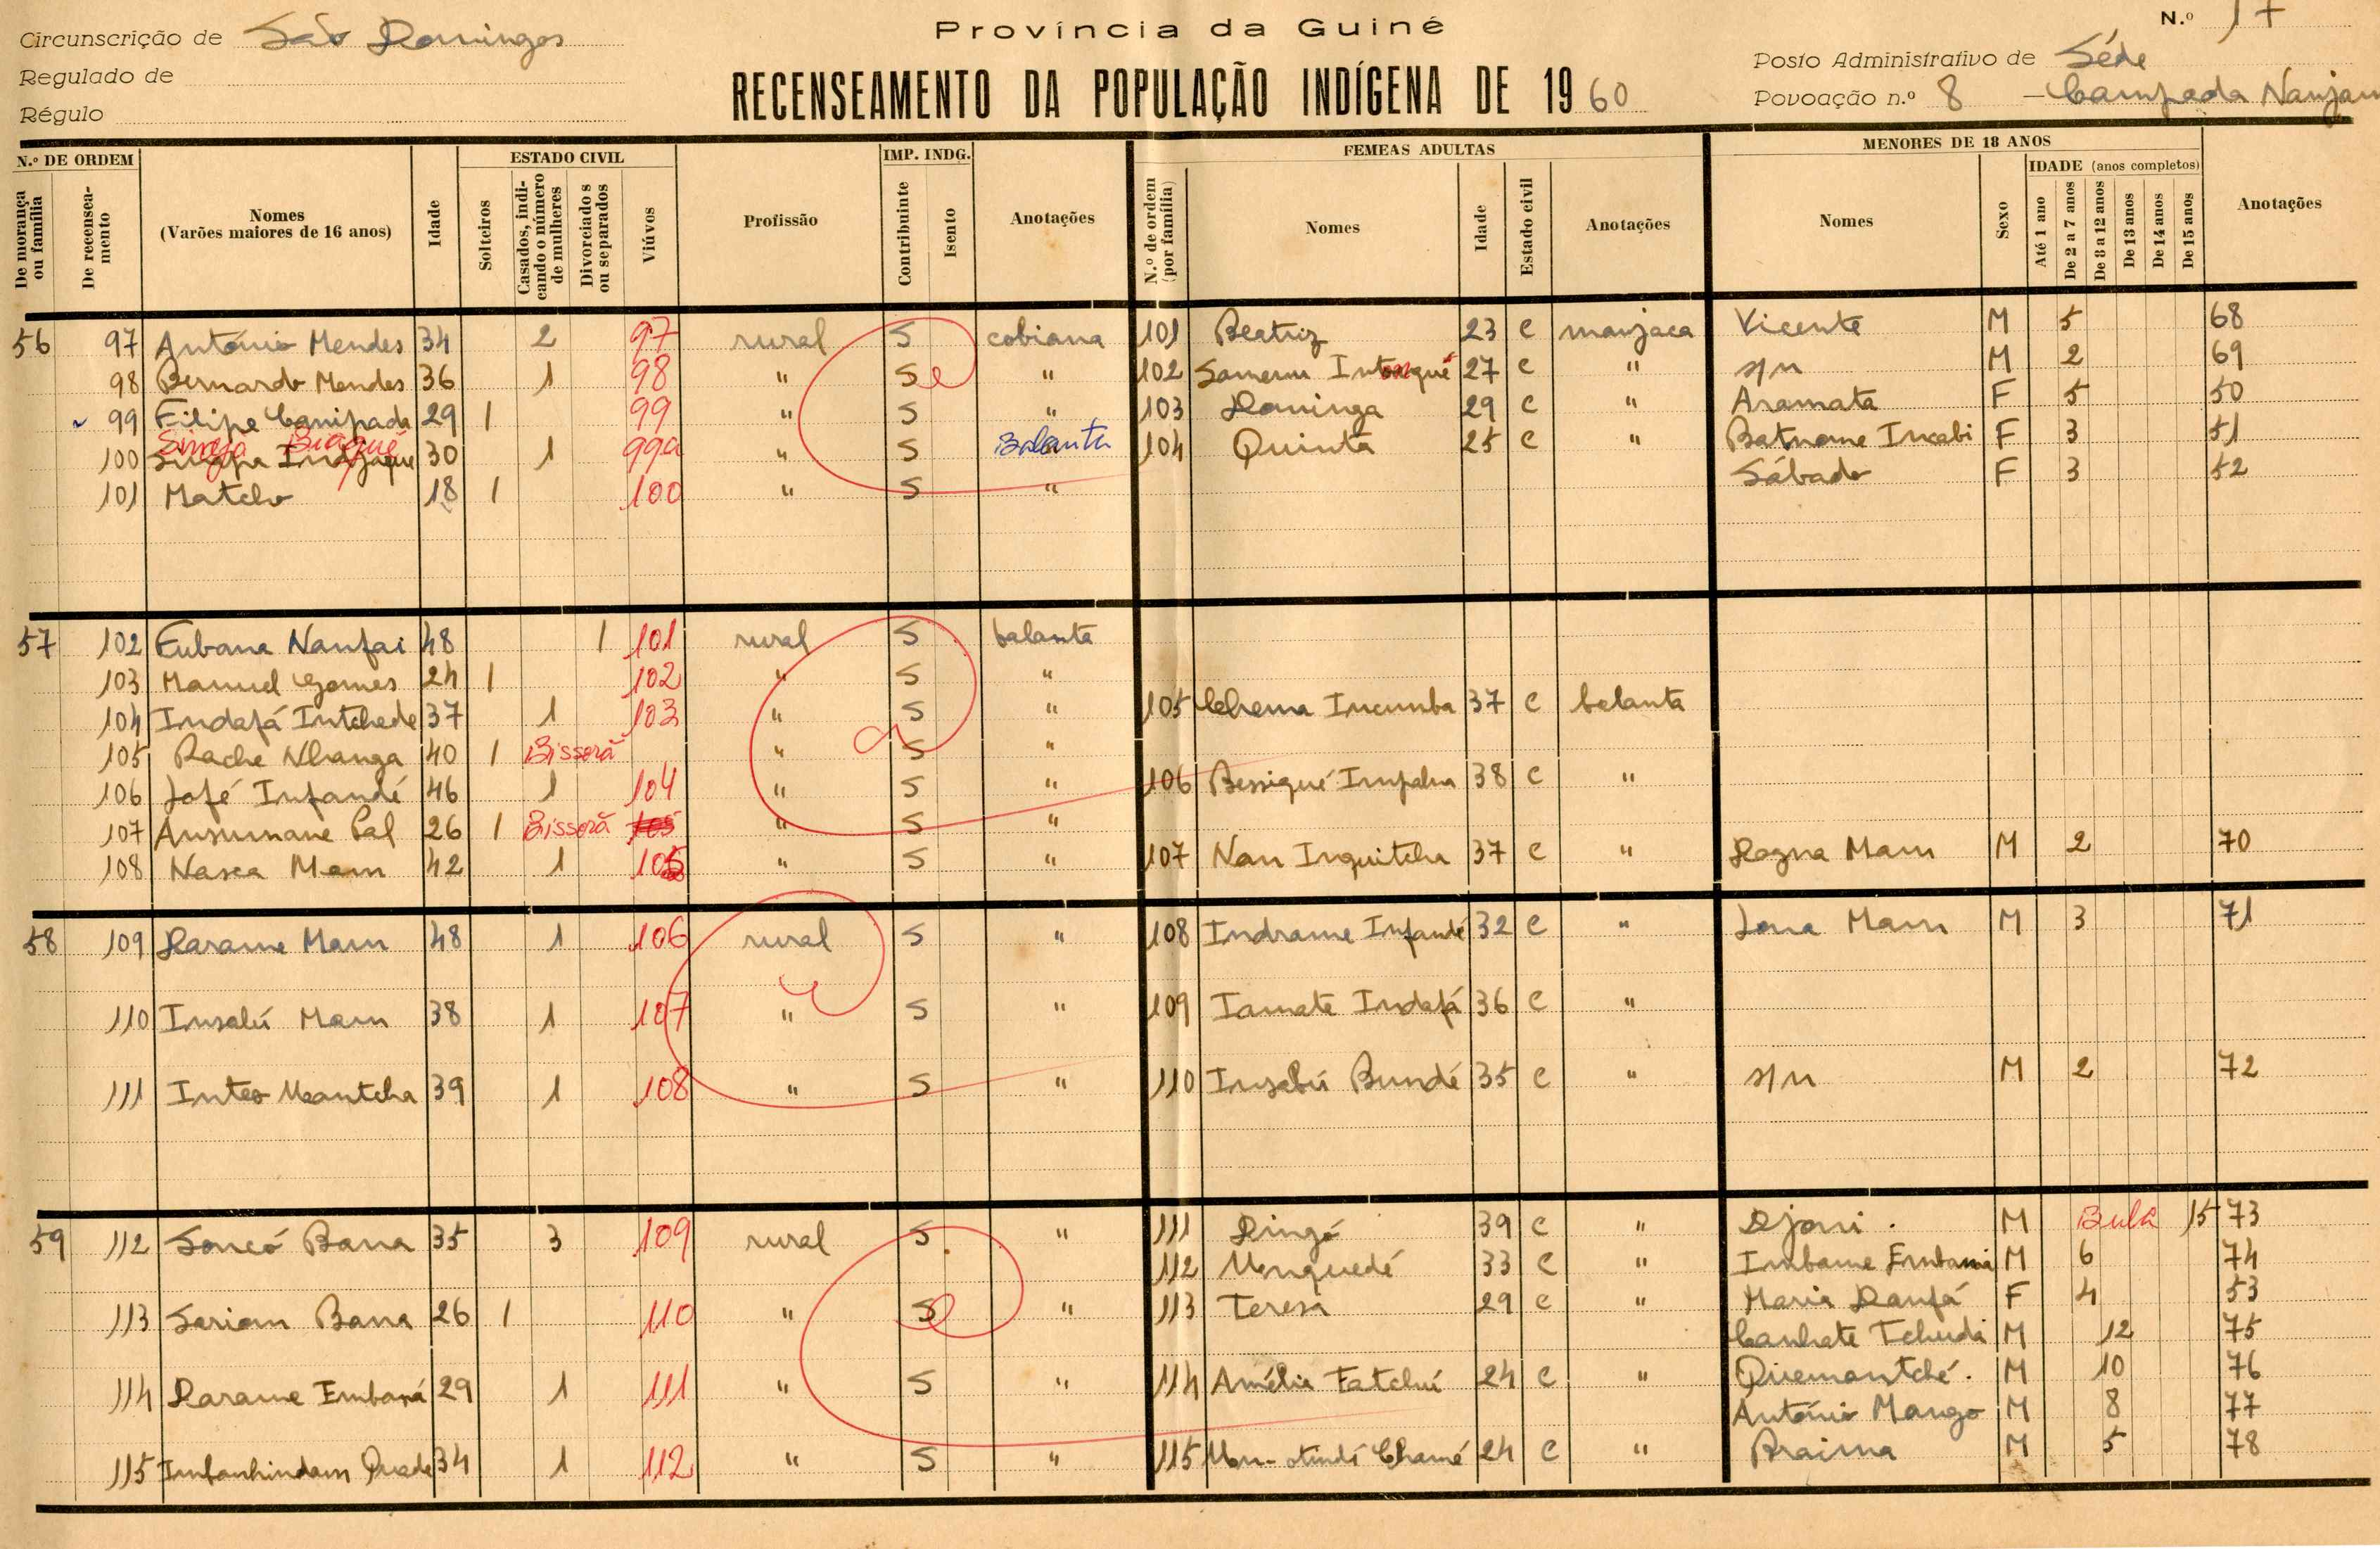 Província da Guiné
N.º 17
Circunscrição de São Domingos
Regulado de
Régulo
RECENSEAMENTO DA POPULAÇÃO INDÍGENA DE 1960
Posto Administrativo de Séde
Povoação n.º 8 - Campada Nanjan
N.º DE ORDEM
De morança ou família
De recenseamento
Nomes
(Varões maiores de 16 anos)
Idade
ESTADO CIVIL
Solteiros
Casados, indicando o número de mulheres
Divorciados ou separados
Viúvos
Profissão
IMP. INDG.
Contribuinte
Isento
Anotações
FEMEAS ADULTAS
N.º de ordem (por família)
Nomes
Idade
Estado civil
Anotações
MENORES DE 18 ANOS
Nomes
Sexo
IDADE (anos completos)
Até 1 ano
De 2 a 7 anos
De 8 a 12 anos
De 13 anos
De 14 anos
De 15 anos
Anotações
56 97 António Mendes 34 2 97 rural S cobiana 101 Beatriz 23 C manjaca Vicente M 5 68
98 Bernardo Mendes 36 1 98 " S " 102 Samem 27 C " s/n M 2 69
99 Filipe Campada 29 1 99 " S " 103 Dominga 29 C " Aramata F 5 50
100 Biaguê 30 1 99a " S Balanta 104 Quinta 25 C " Batnome Incabi F 3 51
101 Matcho 18 1 100 " S " Sábado F 3 52
57 102 Fubana Nanfai 48 1 101 rural S balanta
103 Manuel Gomes 24 1 102 " S "
104 Indafá Intchede 37 1 103 " S " 105 Chema Incumba 37 C balanta
105 Rache Nhanga 40 1 Bissorã " S "
106 Jofé Infandé 46 1 104 " S " 106 Bessiqué Impalna 38 C "
107 Ansumane Cal 26 1 Bissorã 105 " S "
108 Nasca Mam 42 1 105 " S " 107 Nan Inquitcha 37 C " Dogna Mam M 2 70
58 109 Darame Mam 48 1 106 rural S " 108 Indrame Infandé 32 C " Jona Mam M 3 71
110 Insabú Mam 38 1 107 " S " 109 Iamate Indafá 36 C "
111 Inteo Mantcha 39 1 108 " S " 110 Insabú Bundé 35 C " s/n M 2 72
59 112 Soncó Bana 35 3 109 rural S " 111 Dingó 39 C " Djoni M Bula 15 73
112 Monguedé 33 C " Imbame Embaná M 6 74
113 Sariam Bana 26 1 110 " S " 113 Teresa 29 C " Maria Danfá F 4 53
Canhate Tchuda M 12 75
114 Darame Embaná 29 1 111 " S " 114 Amélia Fatchuí 24 C " Quemantché M 10 76
António Mango M 8 77
115 Infanhindam Quade 34 1 112 " S " 115 Chamé 24 C " Braima M 5 78